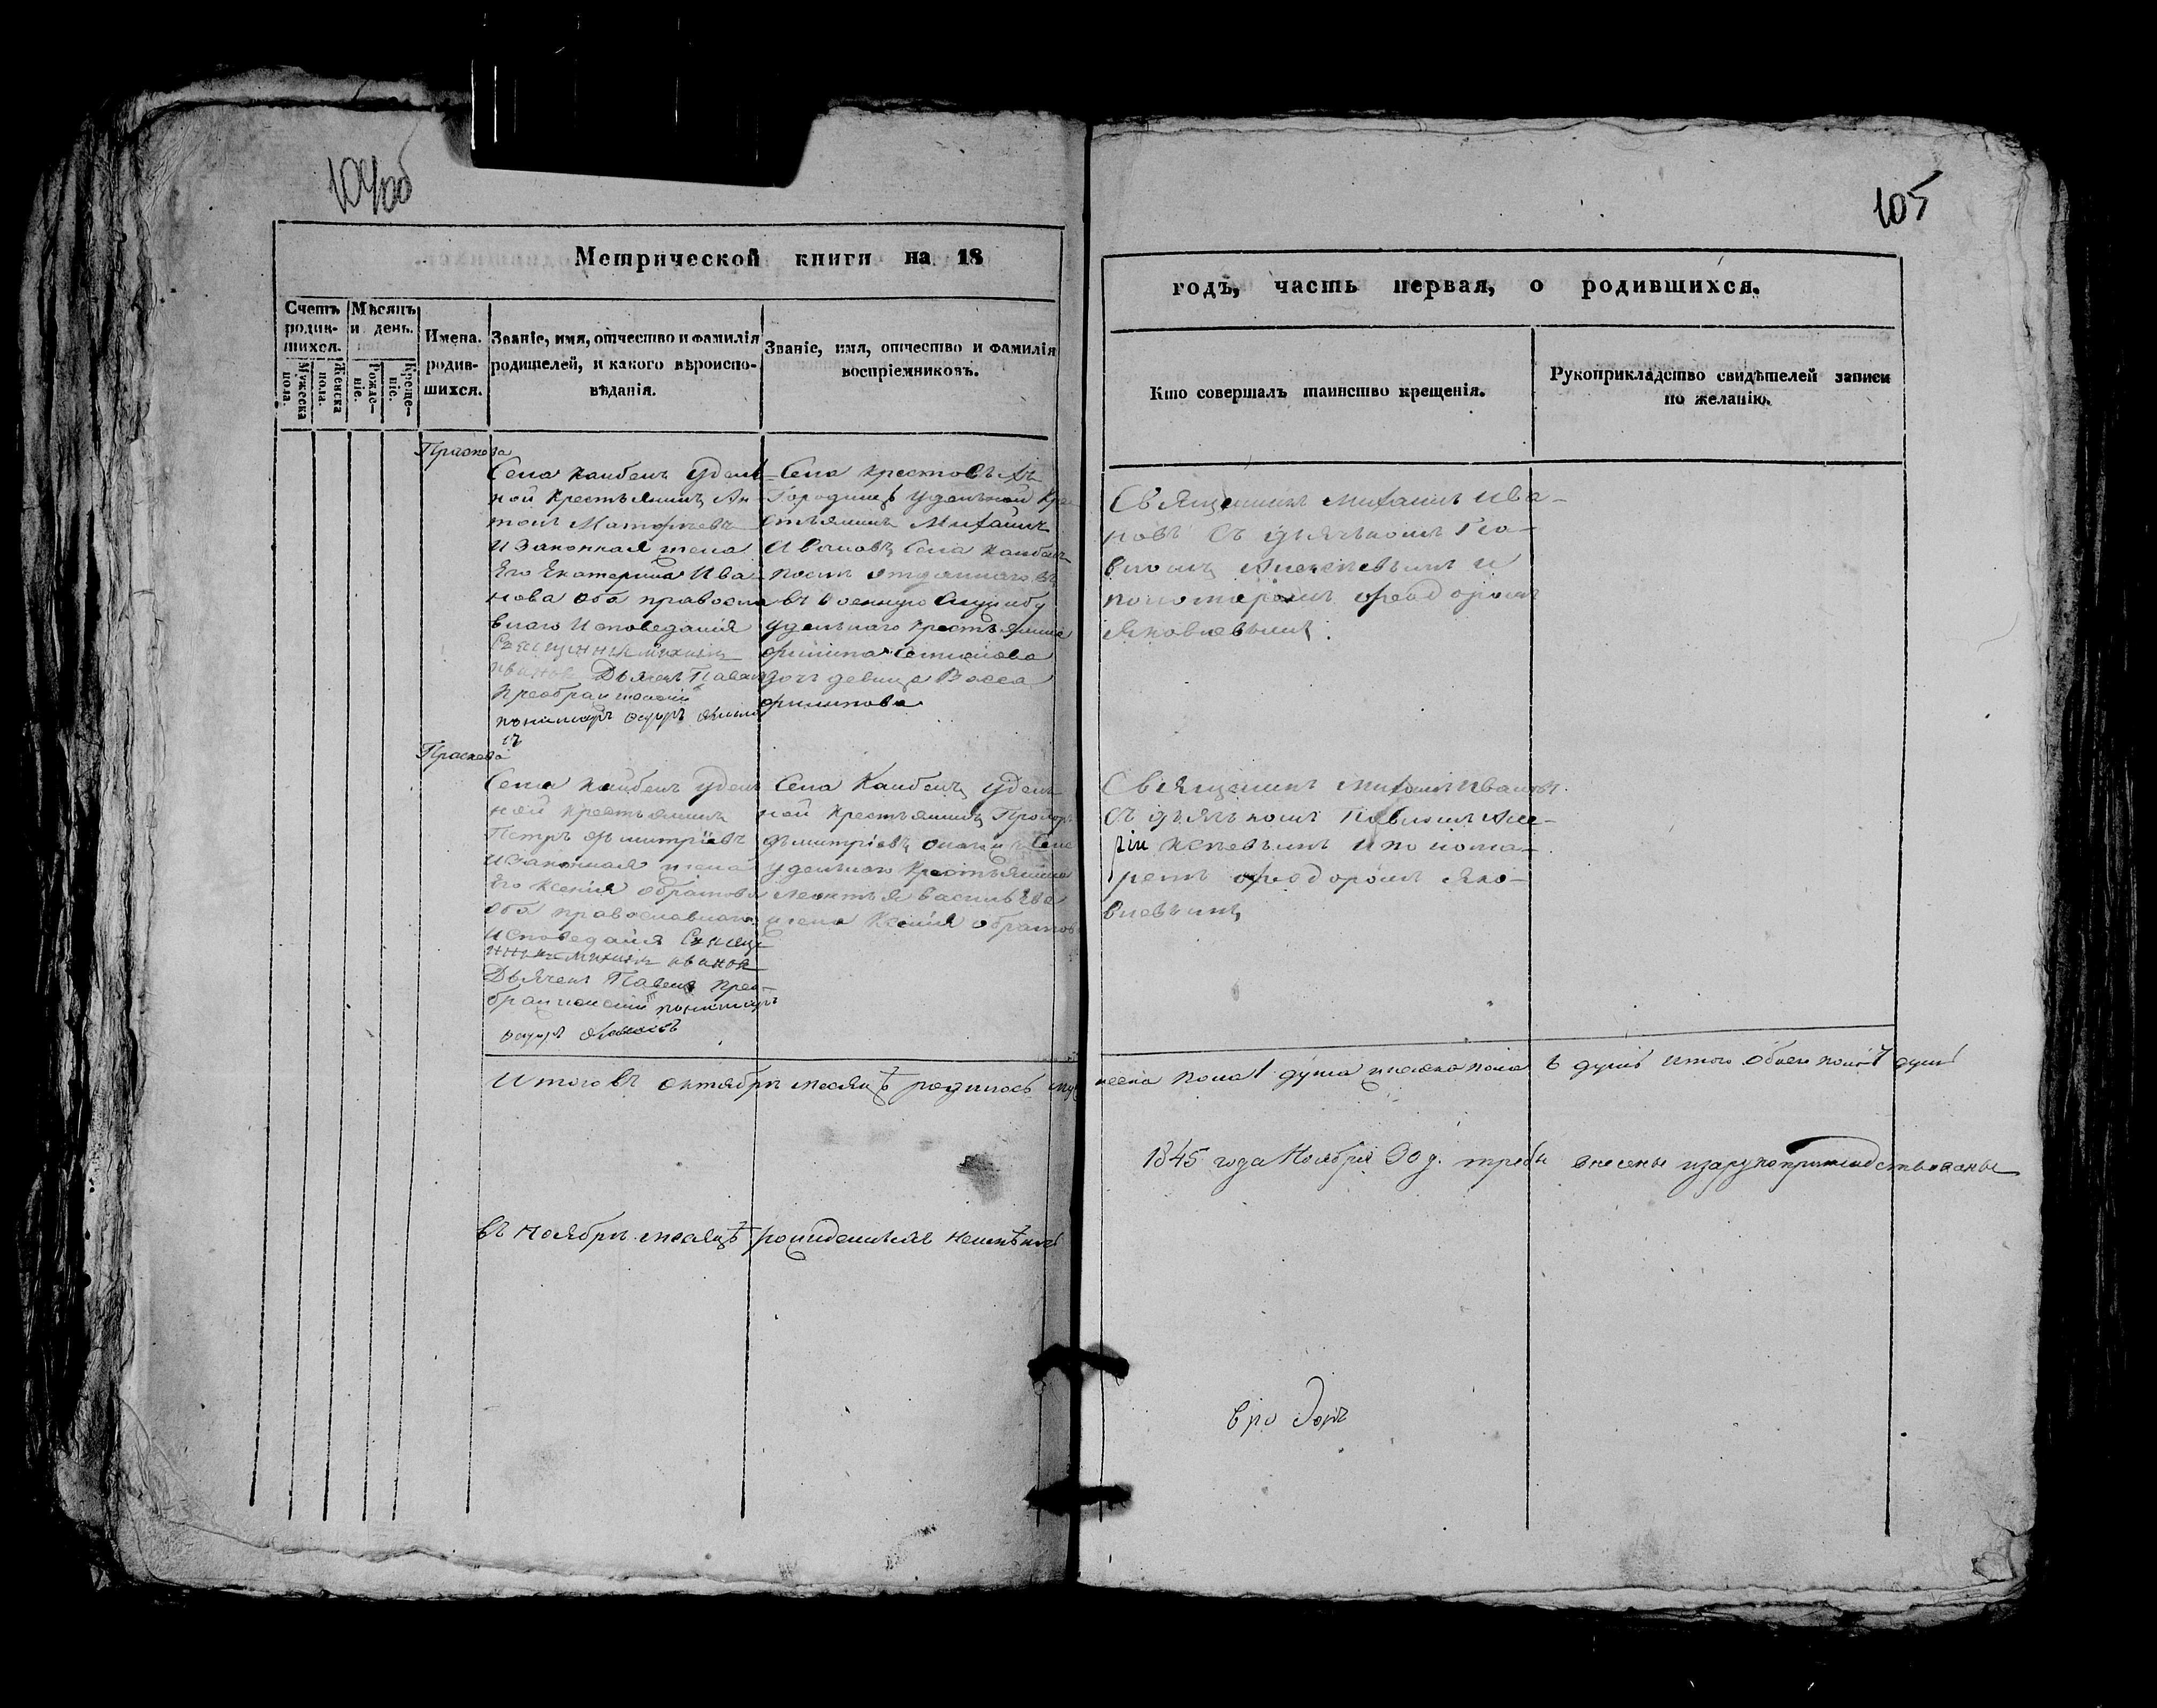 104об
105
Метрической книги на 18
годъ, часть первая, о родившихся.
Счетъ родив-шихся.
Мужеска пола.
Женска пола.
Мѣсяцъ и день.
Рожде-ніе.
Креще-ніе.
Имена. родив-шихся.
Званіе, имя, отчество и фамилія
родителей, и какого вѣроиспо-
вѣданія.
Званіе, имя, отчество и фамилія
воспріемниковъ.
Кто совершалъ таинство крещенія.
Рукоприкладство свидѣтелей записи
по желанію.
Праскова
Села Каибелъ удель
ной Крестьянинъ Ан
тонъ Матфѣевъ
И Законная жена
Его Екатерина Ива
нова оба правосла
внаго Исповедания
Священникъ Михаилъ
Ивановъ Дьячекъ Павелъ
Преображенскій
пономарь
Села Крестовъ
Городищъ Удельной Кре
стьянинъ Михаилъ
Ивановъ Села Каибелъ
отданнаго въ
въ военную Службу
удельнаго Крестьянина
Филипа Степанова
дочь девица Васса
филипова
Священникъ Михаилъ Ива-
новъ Съ дьячькомъ Па-
вломъ Алексеевымъ и
пономаромъ Феодоромъ
Яковлевымъ.
Праскева
Села Каибелъ удель
ной Крестьянинъ
Петръ Дьмитріевъ
И Законная жена
Его Ксенія
оба православнаго
Исповеданія Священ
нникъ Михаилъ Иванов
Дьячекъ Павелъ Прео-
браженскій пономарь
Села Каибелъ удель
ной Крестьянинъ Прохор
Дьмитріевъ Села
удельнаго Крестьянина
Леонтья Васильева
жена Ксенія
Священникъ Михаилъ Ивановъ
Съ дьячькомъ Павломъ Але-
ксѣевымъ и понома-
ремъ Феодоромъ Яко-
влевымъ
Итого въ октябрѣ месяцѣ родилось муж
еска пола 1 душа женска пола 6 душъ итого обоего пола 7 душъ
1845 года Ноября 30 д. требы внесены
Въ Ноябрѣ месяцѣ рожденныхъ неимѣлось